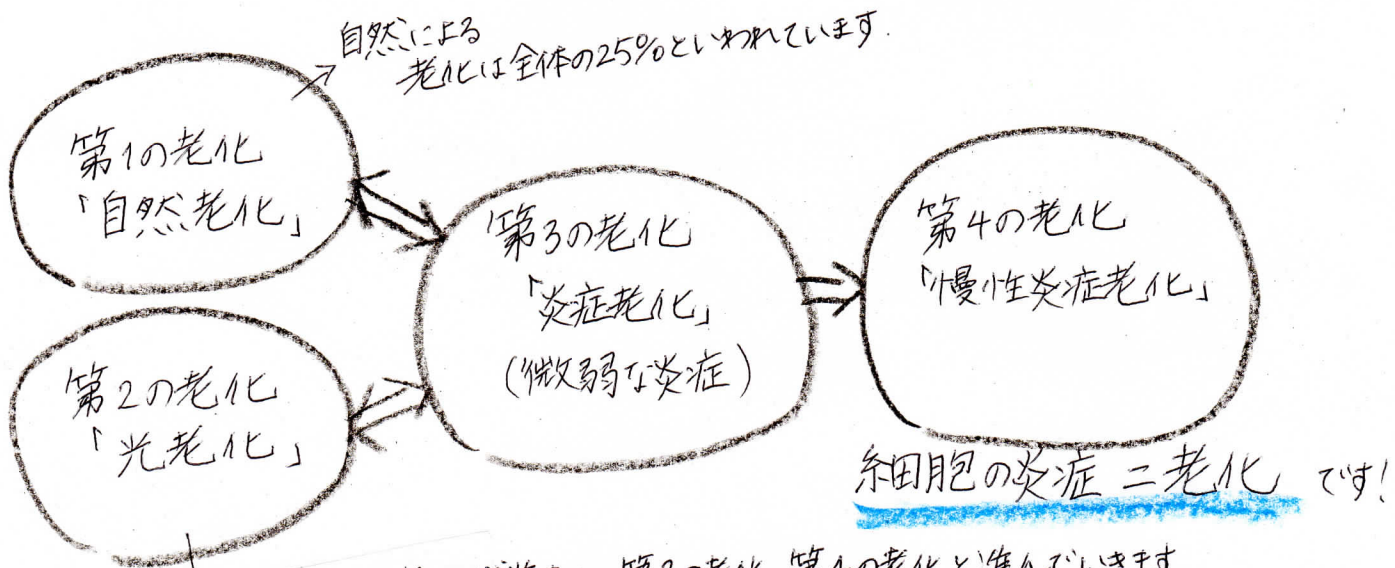 自然による
老化は全体の25%といわれています.
第1の老化
「自然老化」
第2の老化
「光老化」
第3の老化
「炎症老化」
(微弱な炎症)
第4の老化
「慢性炎症老化」
細胞の炎症=老化 です!
第3の老化、第4の老化と進んでいきます